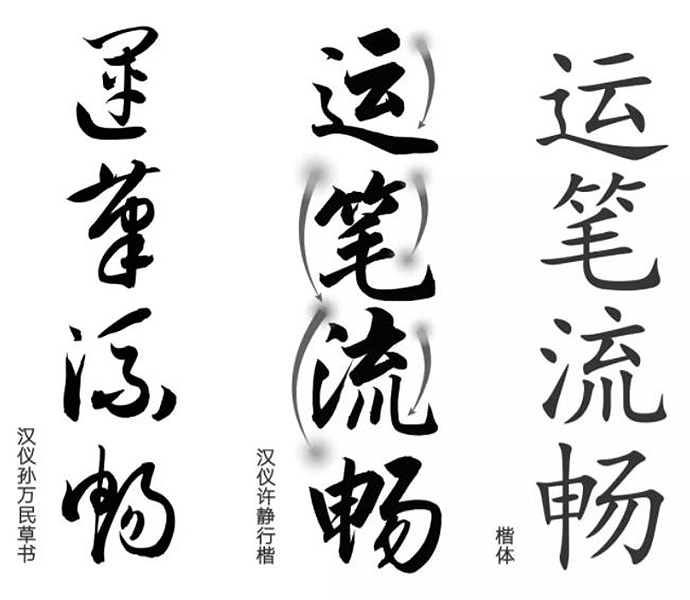 運筆流暢
汉仪孙万民草书
运笔流畅
汉仪许静行楷
运笔流畅
楷体